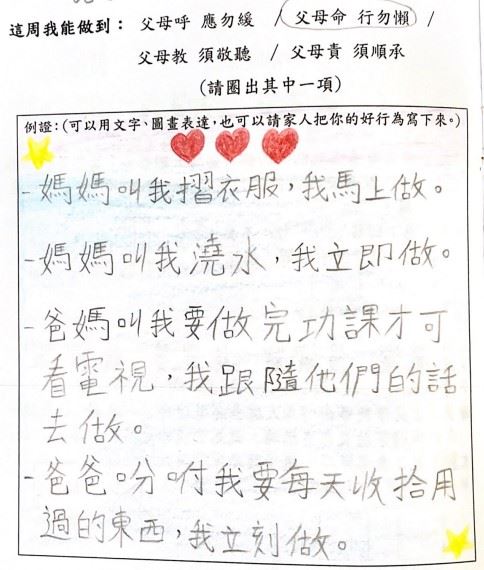 這周我能做到：父母呼 應勿緩 / 父母命 行勿懶 /
父母教 須敬聽 / 父母責 須順承
(請圈出其中一項)
例證：(可以用文字、圖畫表達，也可以請家人把你的好行為寫下來。)
-媽媽叫我摺衣服，我馬上做。
-媽媽叫我澆水，我立即做。
-爸媽叫我要做完功課才可
看電視，我跟隨他們的話
去做。
-爸爸吩咐我要每天收拾用
過的東西，我立刻做。